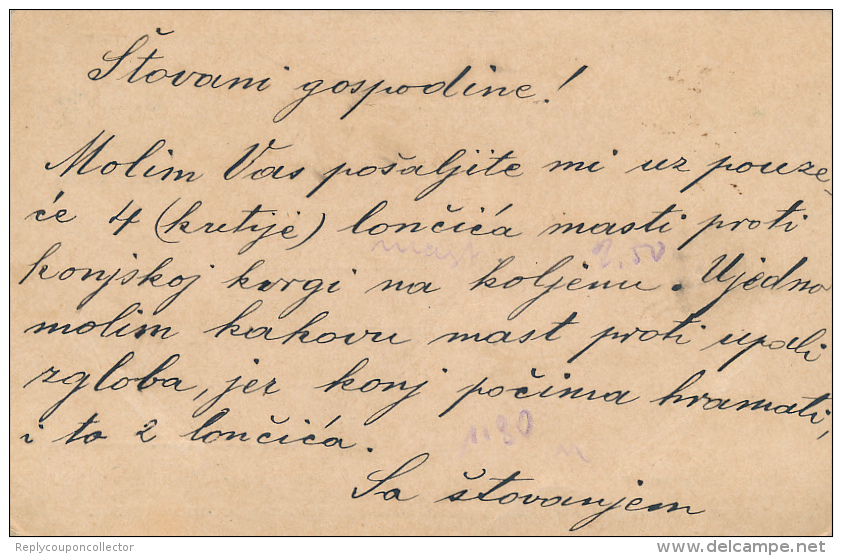 Štovani gospodine!
Molim Vas pošaljite mi uz pouze-
će 4 (kretije) lončića masti proti
mast 2.50
konjskoj kvrgi na koljenu. Ujedno
molim kakovu mast proti upali
zgloba, jer konj počima hramati,
1.30
i to 2 lončića.
Sa štovanjem
Replycouponcollector
http://www.delcampe.net